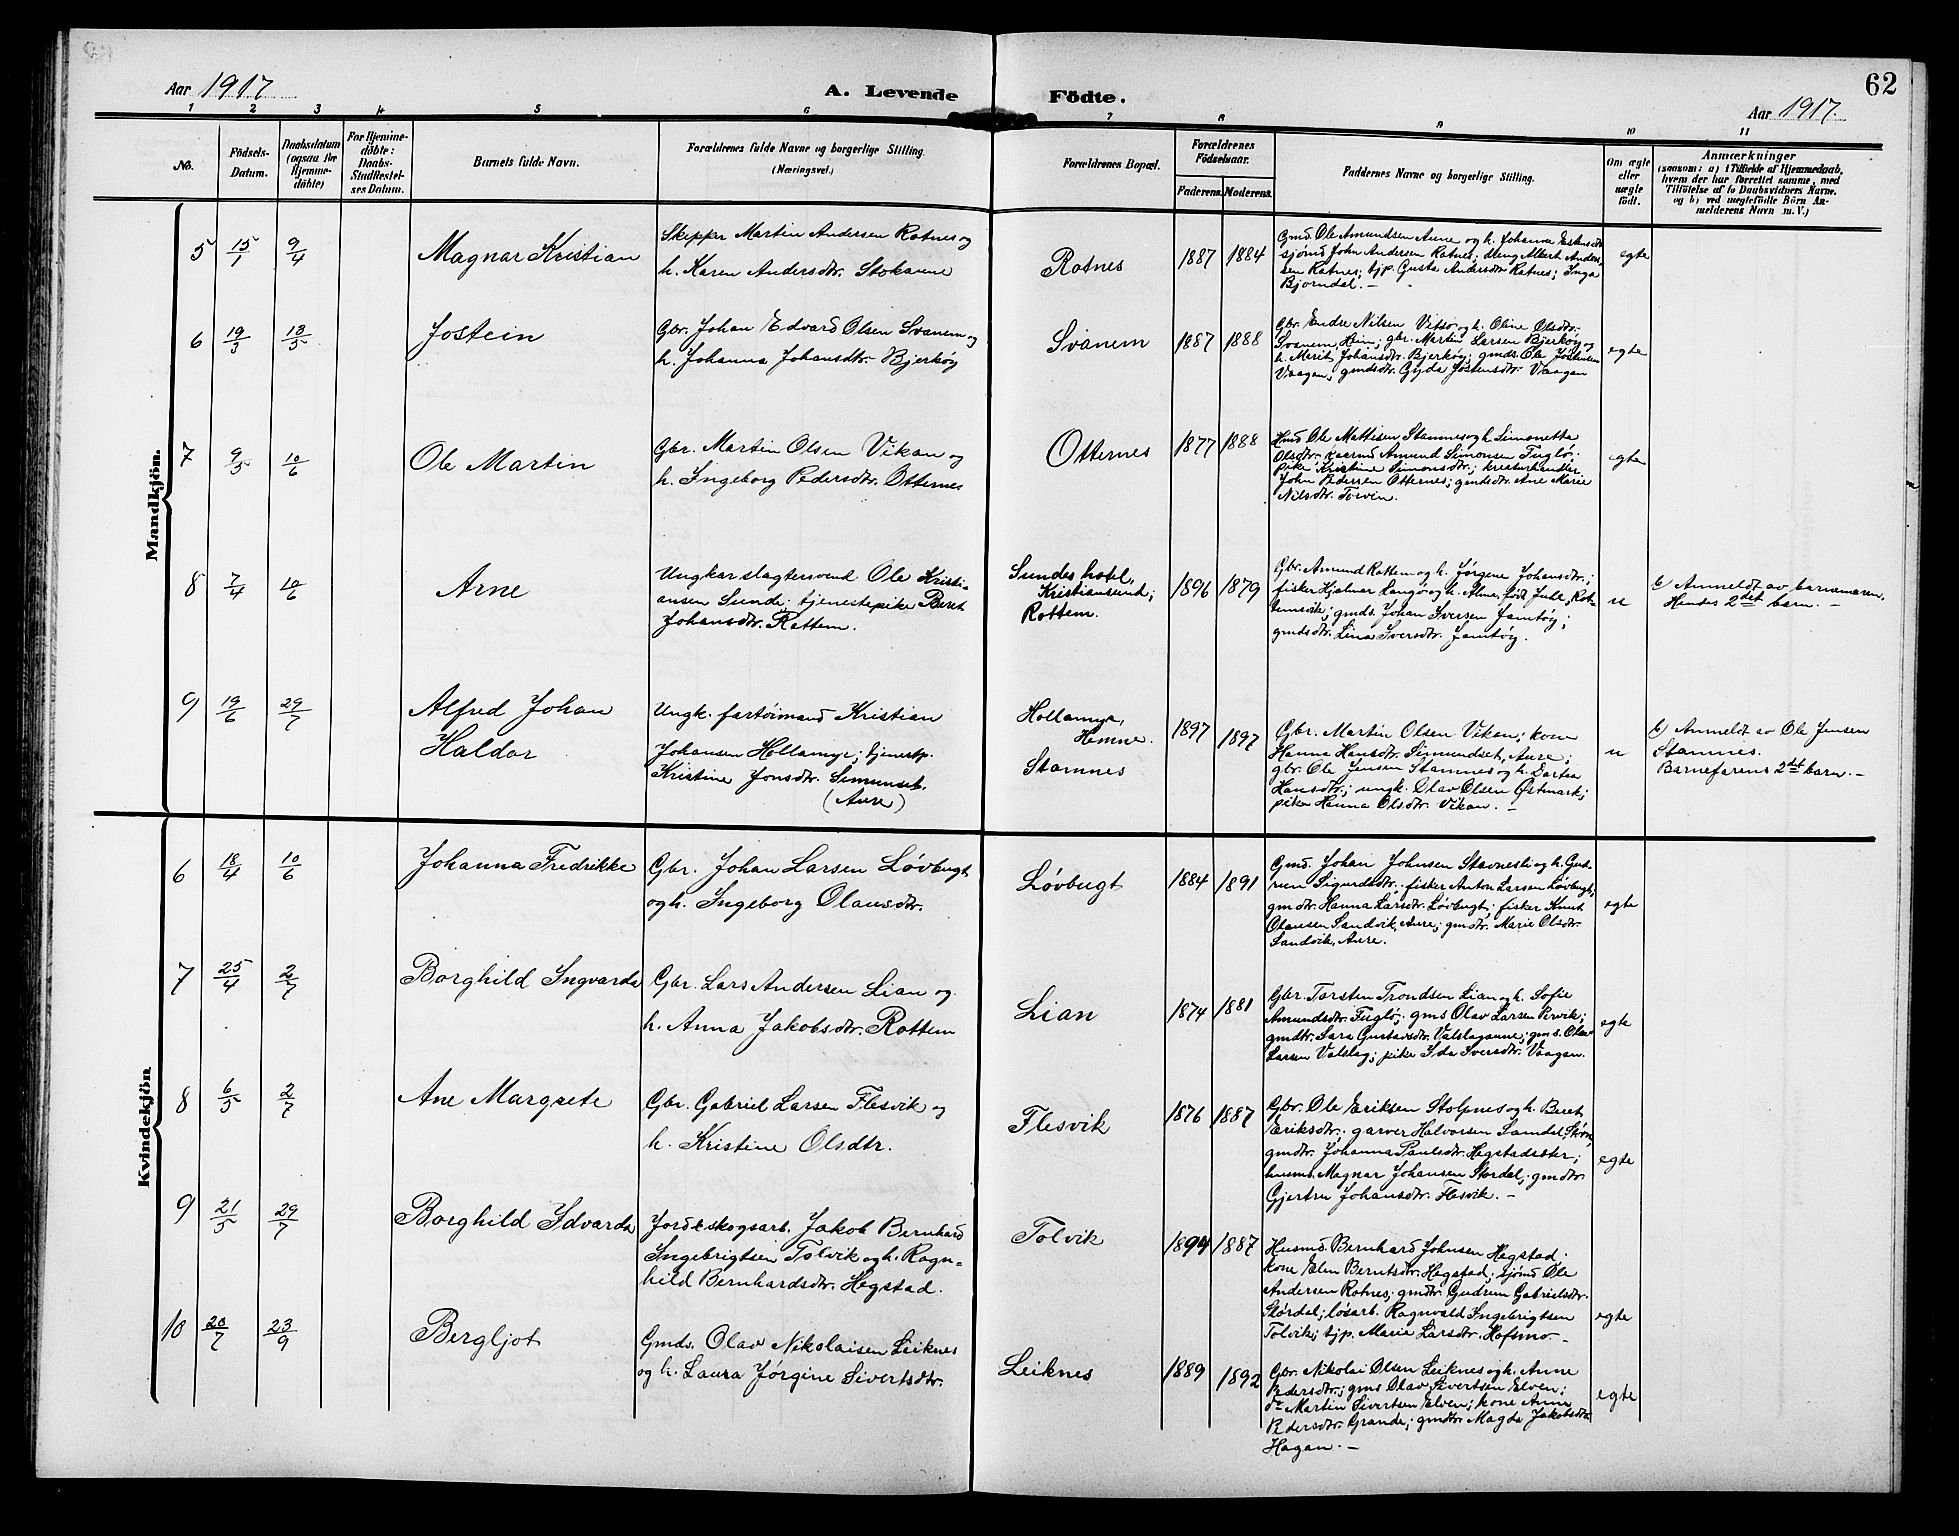 Aar 1917
A. Levende Födte.
62
Aar 1917.
1 2 3 4 5 6 7 8 9 10 11
No.
Födsels-
Datum.
Daabsdatum
(ogsaa for
Hjemme-
döbte)
For Hjemme-
döbte:
Daabs-
Stadfestel-
ses Datum.
Barnets fulde Navn.
Forældrenes fulde Navne og borgerlige Stilling.
(Næringsvei.)
Forældrenes Bopæl.
Forældrenes
Födselsaar.
Faderens. Moderens.
Faddernes Navne og borgerlige Stilling.
Om ægte
eller
uægte
født.
Anmærkninger
(saasom: a) i Tilfælde af Hjemmedaab,
hvem der har forrettet samme, med
Tilföielse af to Daabsvidners Navne,
og b) ved uægtefödte Börn An-
melderens Navn m. V.)
Mandkjön.
5 15/1 9/4
Magnar Kristian
Skipper Martin Andersen Rotnes og
h. Karen Andersdtr. Stokaune
Rotnes
1887 1884
Gmd. Ole Amundsen Aune og h. Johanna Estensdtr.
sjömd John Andersen Rotnes; Albert Ander-
sen Rotnes; tjp. Gusta Andersdtr Rotnes; Inga
Bjørndal. –
egte
6 19/3 13/5
Jostein
Gbr. Johan Edvard Olsen Svanem og
h. Johanna Johansdtr. Bjerkøy
Svanem
1887 1888
Gbr. Endre Nilsen Vitsø og h. Oline Olsdtr.
Svanem, Heim; gbr. Martin Larsen Bjerkøy og
h. Merit Johansdtr. Bjerkøy; gmds. Ole Jostensen
Vaagan; gmdsdtr. Gyda Jostensdtr. Vaagan
egte
7 9/5 10/6
Ole Martin
Gbr. Martin Olsen Vikan og
h. Ingeborg Pedersdtr. Otternes
Otternes
1877 1888
Hmd Ole Mattisen Stamnes og h. Simonetta
Olsdtr. kaarmd Amund Simonsen Fuglø;
pike Kristine Simonsdtr.; kreaturhandler
John Pedersen Otternes; gmdsdtr. Ane Marie
Nilsdtr. Torvin.
egte
8 7/4 10/6
Arne
Ungkar slagtersvend Ole Kristi-
ansen Sunde; tjenestepike Beret
Johansdtr. Rottem.
Sundes hotel,
Kristiansund;
Rottem.
1896 1879
Gbr. Amund Rottem og h. Jørgine Johansdtr.;
fisker Hjalmar Langø og h. Alma, født Juli, Rot-
temsvik; gmds. Johan Iversen Jamtøy;
gmdsdtr. Lina Iversdtr. Jamtøy.
u
b) Anmeldt av barnemoren.
Hendes 2det barn. –
9 19/6 29/7
Alfred Johan
Haldor
Ungk. fartöimand Kristian
Johansen Hollamyr; tjenestp.
Kristine Jonsdtr. Simunset.
(Aure)
Hollamyr,
Hemne.
Stamnes
1897 1897
Gbr. Martin Olsen Vikan; kone
Hanna Hansdtr. Simundset, Aure;
gbr. Ole Jensen Stamnes og h. Dortea
Hansdtr.; ungk. Olav Olsen Østmark;
pike Hanna Olsdtr. Vikan. –
u
b) Anmeldt av Ole Jensen
Stamnes.
Barnefarens 2det barn. –
Kvindekjön
6 18/4 10/6
Johanna Fredrikke
Gbr. Johan Larsen Løvbugt
og h. Ingeborg Olausdtr.
Løvbugt
1884 1891
Gmd. Johan Johnsen Stavnesli og h. Gud-
run Sigurdsdtr. fisker Anton Larsen Løvbugt;
gmdtr. Hanna Larsdtr. Løvbugt; fisker Knut
Olausen Sandvik, Aure; gmdtr. Marie Olsdtr.
Sandvik, Aure.
egte
7 25/4 2/7
Borghild Ingvarda
Gbr. Lars Andersen Lian og
h. Anna Jakobsdtr. Rottem
Lian
1874 1881
Gbr. Torsten Trondsen Lian og h. Sofie
Amundsdtr. Fuglø; gms Olav Larsen Rovik;
gmdtr. Sara Gustavsdtr. Valslagaune; gms. Olav
Larsen Valslag; pike Ida Iversdtr. Vaagan.
egte
8 6/5 2/7
Ane Margrete
Gbr. Gabriel Larsen Flesvik og
h. Kristine Olsdtr.
Flesvik
1876 1887
Gbr. Ole Eriksen Stolpnes og h. Beret
Eriksdtr.; garver Halvorsen Samdal,
gmdtr. Johanna Paulsdtr. Hegstadsæter;
husmd. Magnar Johansen Stordal; gmdtr.
Gjertru Johansdtr. Flesvik. –
egte
9 21/5 29/7
Borghild Edvarda
Jord & skogsarb. Jakob Bernhard
Ingebrigtsen Tolvik og h. Ragn-
hild Bernhardsdtr. Hegstad.
Tolvik
1894 1887
Husmd. Bernhard Johnsen Hegstad;
kone Elen Berntsdtr. Hegstad; sjömd Ole
Andersen Rotnes; gmdtr. Gudrun Gabrielsdtr.
Stordal; løsarb. Ragnvald Ingebrigtsen
Tolvik; tjp. Marie Larsdtr. Hofsmo –
egte
10 20/7 23/9
Bergljot
Gmds. Olav Nikolaisen Leiknes
og h. Laura Jørgine Sivertsdtr.
Leiknes
1889 1892
Gbr. Nikolai Olsen Leiknes og h. Anne
Pedersdtr.; gms Olav Sivertsen Elven;
do Martin Sivertsen Elven; kone Anne
Pedersdtr. Grande; gmdtr. Magda Jakobsdtr.
Hagan. –
egte